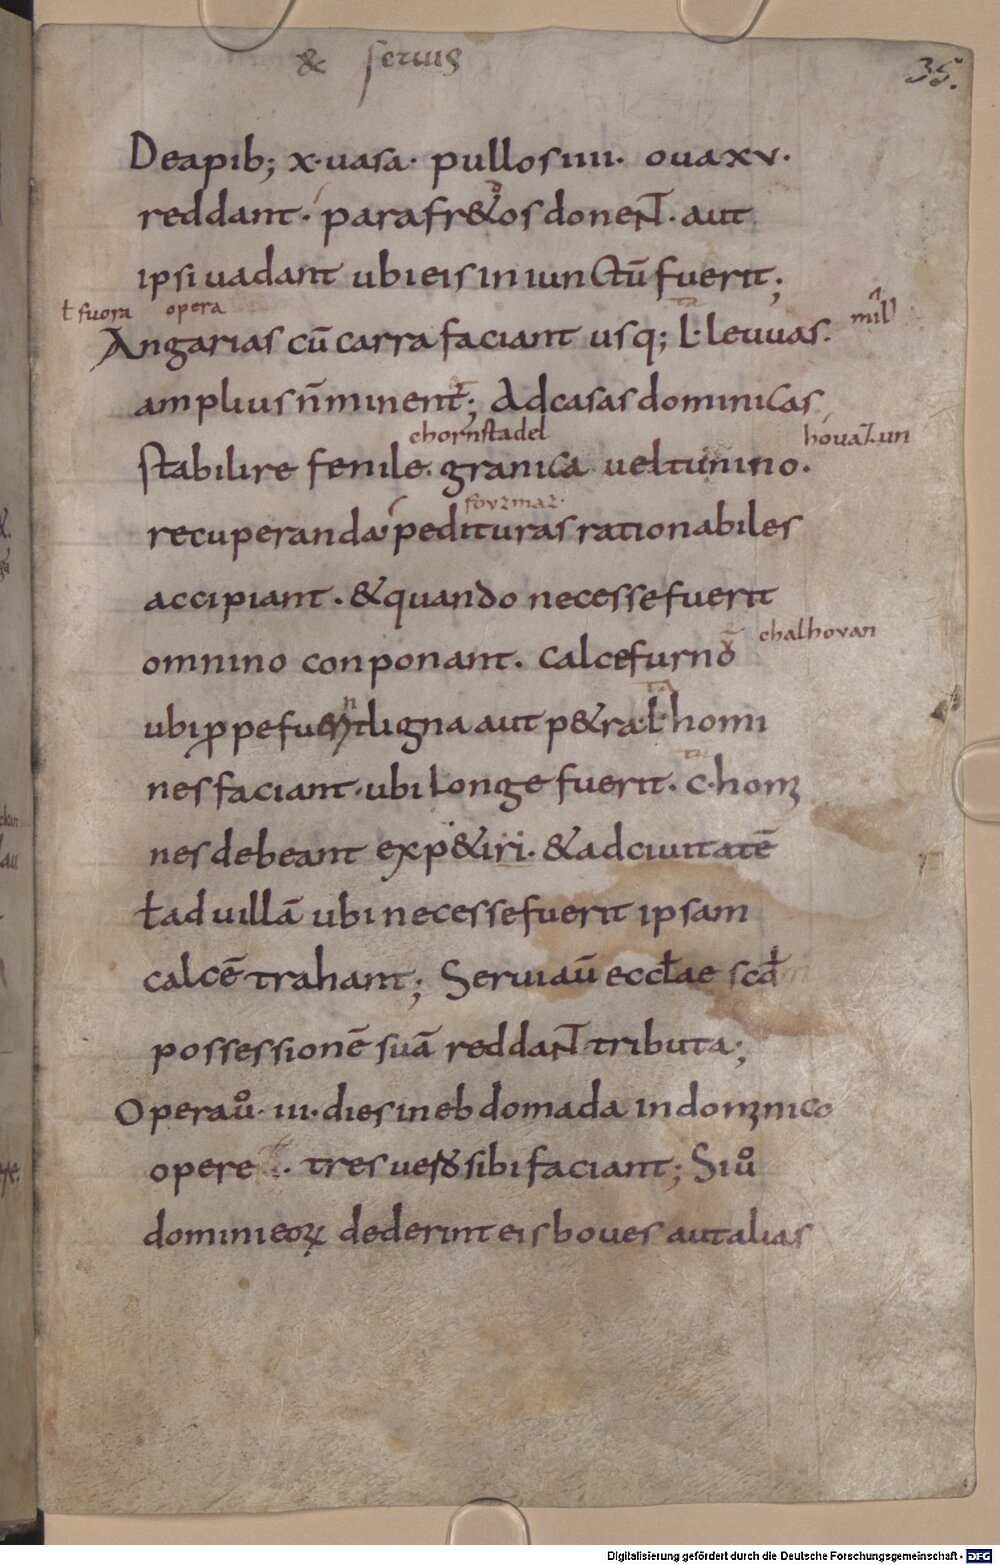 & seruis
35.
Deapib; x·uasa· pullos iiii· oua xv·
reddant· parafr&os donent· aut
ipsi uadant ubi eis iniunctū fuerit;
ł fuora opera
mil
Angarias cū carra faciant usq; L· leuuas·
amplius n̄ minent; Ad casas dominicas
chornstadel
stabilire fenile· granica uel tunino·
recuperanda pedituras rationabiles
accipiant· & quando necesse fuerit
chalhovan
omnino conponant· calcefurno
ubi ꝓpe fuerit ligna aut p&ra· L· homi
nes faciant· ubi longe fuerit· C· homi
nes debeant exp&iri· & ad ciuitatē
ł ad uillā ubi necesse fuerit ipsam
calcē trahant; Serui aū eccłae scđ
possessionē suā reddant tributa;
Opera uͦ· iii· dies in ebdomada in dominico
opere · tres uero sibi faciant; Si uͦ
domini eoꝝ dederint eis boues aut alias
Digitalisierung gefördert durch die Deutsche Forschungsgemeinschaft - DFG